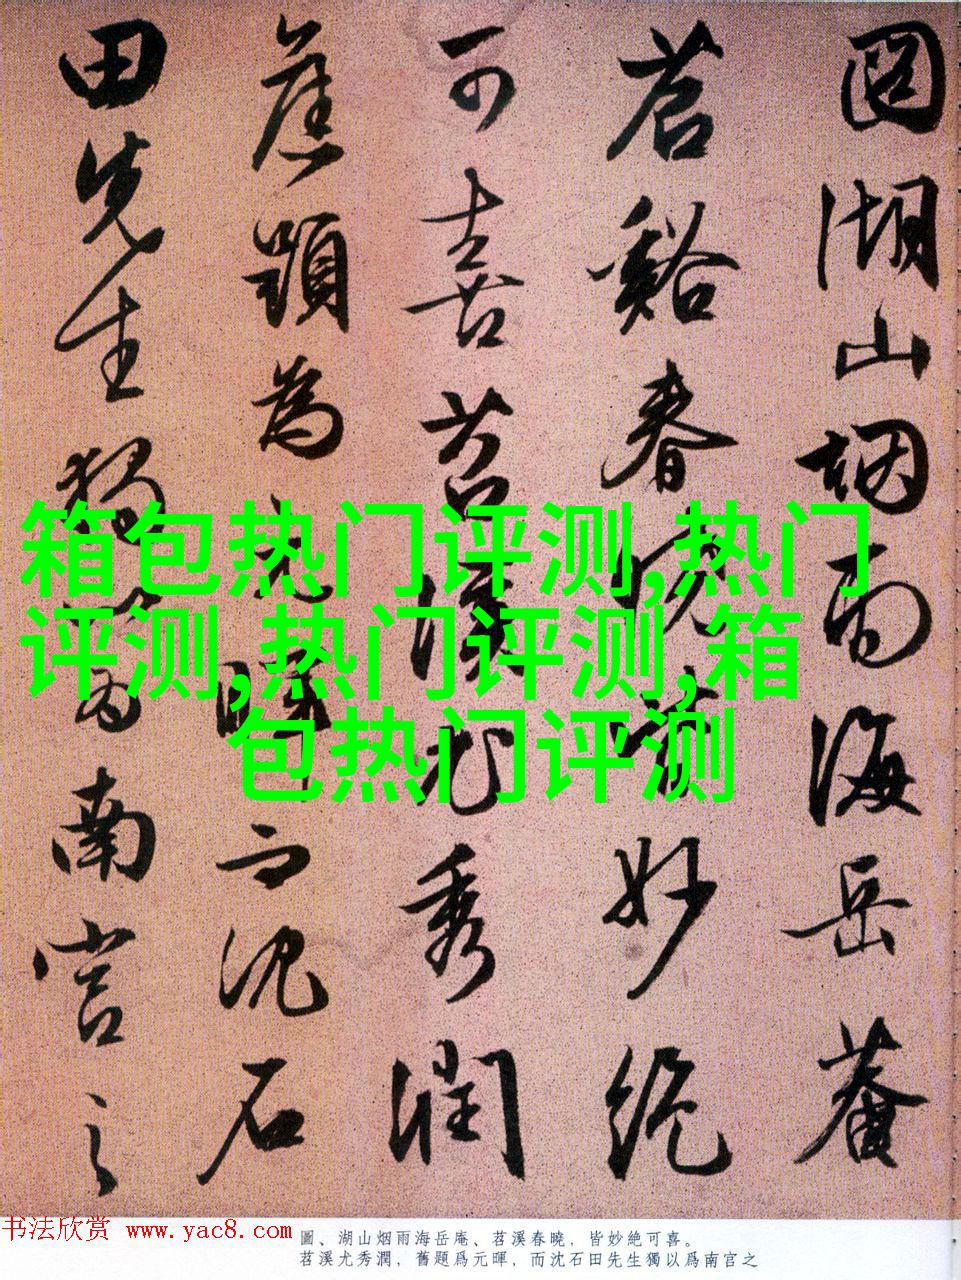 圖湖山烟雨海岳菴
苕谿春曉皆妙絶
可喜苕溪尤秀潤
舊題為元暉而沈石
田先生獨以為南宫之
箱包热门评测,热门
评测,热门评测,箱
包热门评测
书法欣赏 www.yac8.com
圖、湖山烟雨海岳庵、苕溪春曉，皆妙絶可喜。
苕溪尤秀潤，舊題爲元暉，而沈石田先生獨以爲南宫之